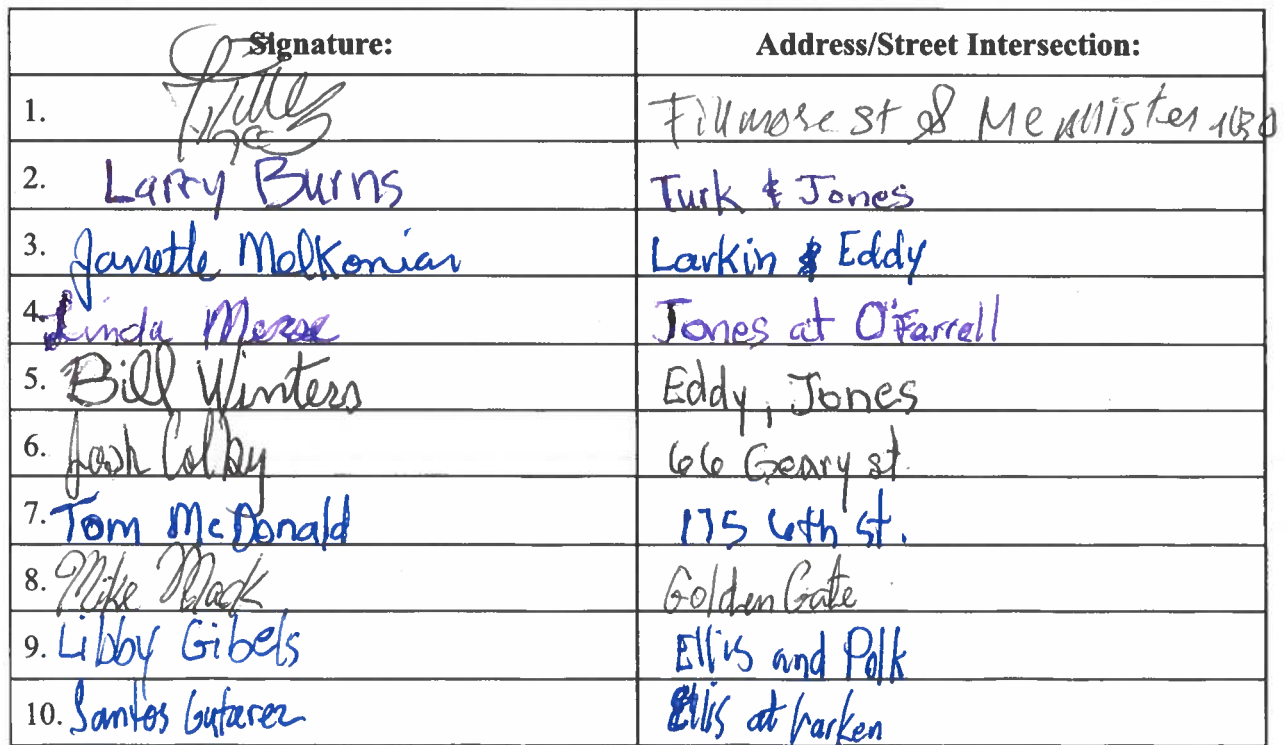 Signature: Address/Street Intersection:
1. Fillmore st & Mc
2. Larry Burns Turk & Jones
3. Janette Melkonian Larkin & Eddy
4. Linda Jones at O'Farrell
5. Bill Winters Eddy, Jones
6. Josh Colby 66 Geary st.
7. Tom McDonald 175 6th st.
8. Mike Mack Golden Gate
9. Libby Gibels Ellis and Polk
10. Santos Gutarez Ellis at Larken